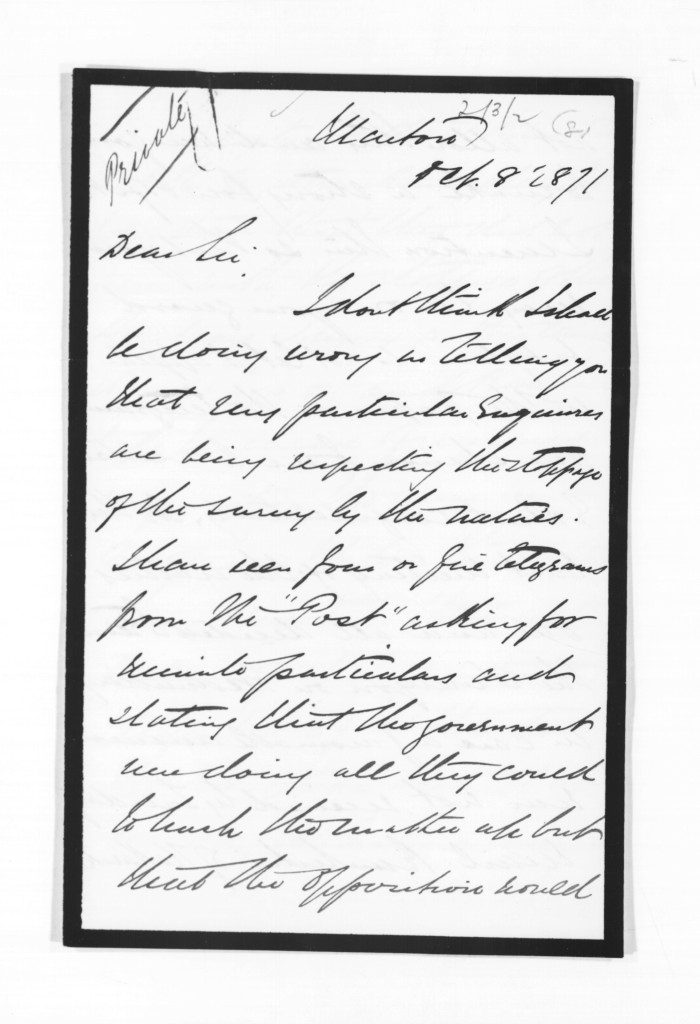 Private
2/3/2 (8)
Marton
Oct. 8 1871
Dear Sir
I dont think I shall
be doing wrong in telling you
that very particular Enquiries
are being respecting the stoppage
of the survey by the natives.
I have seen four or five telegrams
from the "Post" asking for
minute particulars and
stating that the government
were doing all they could
to hush the matter up but
that the opposition would